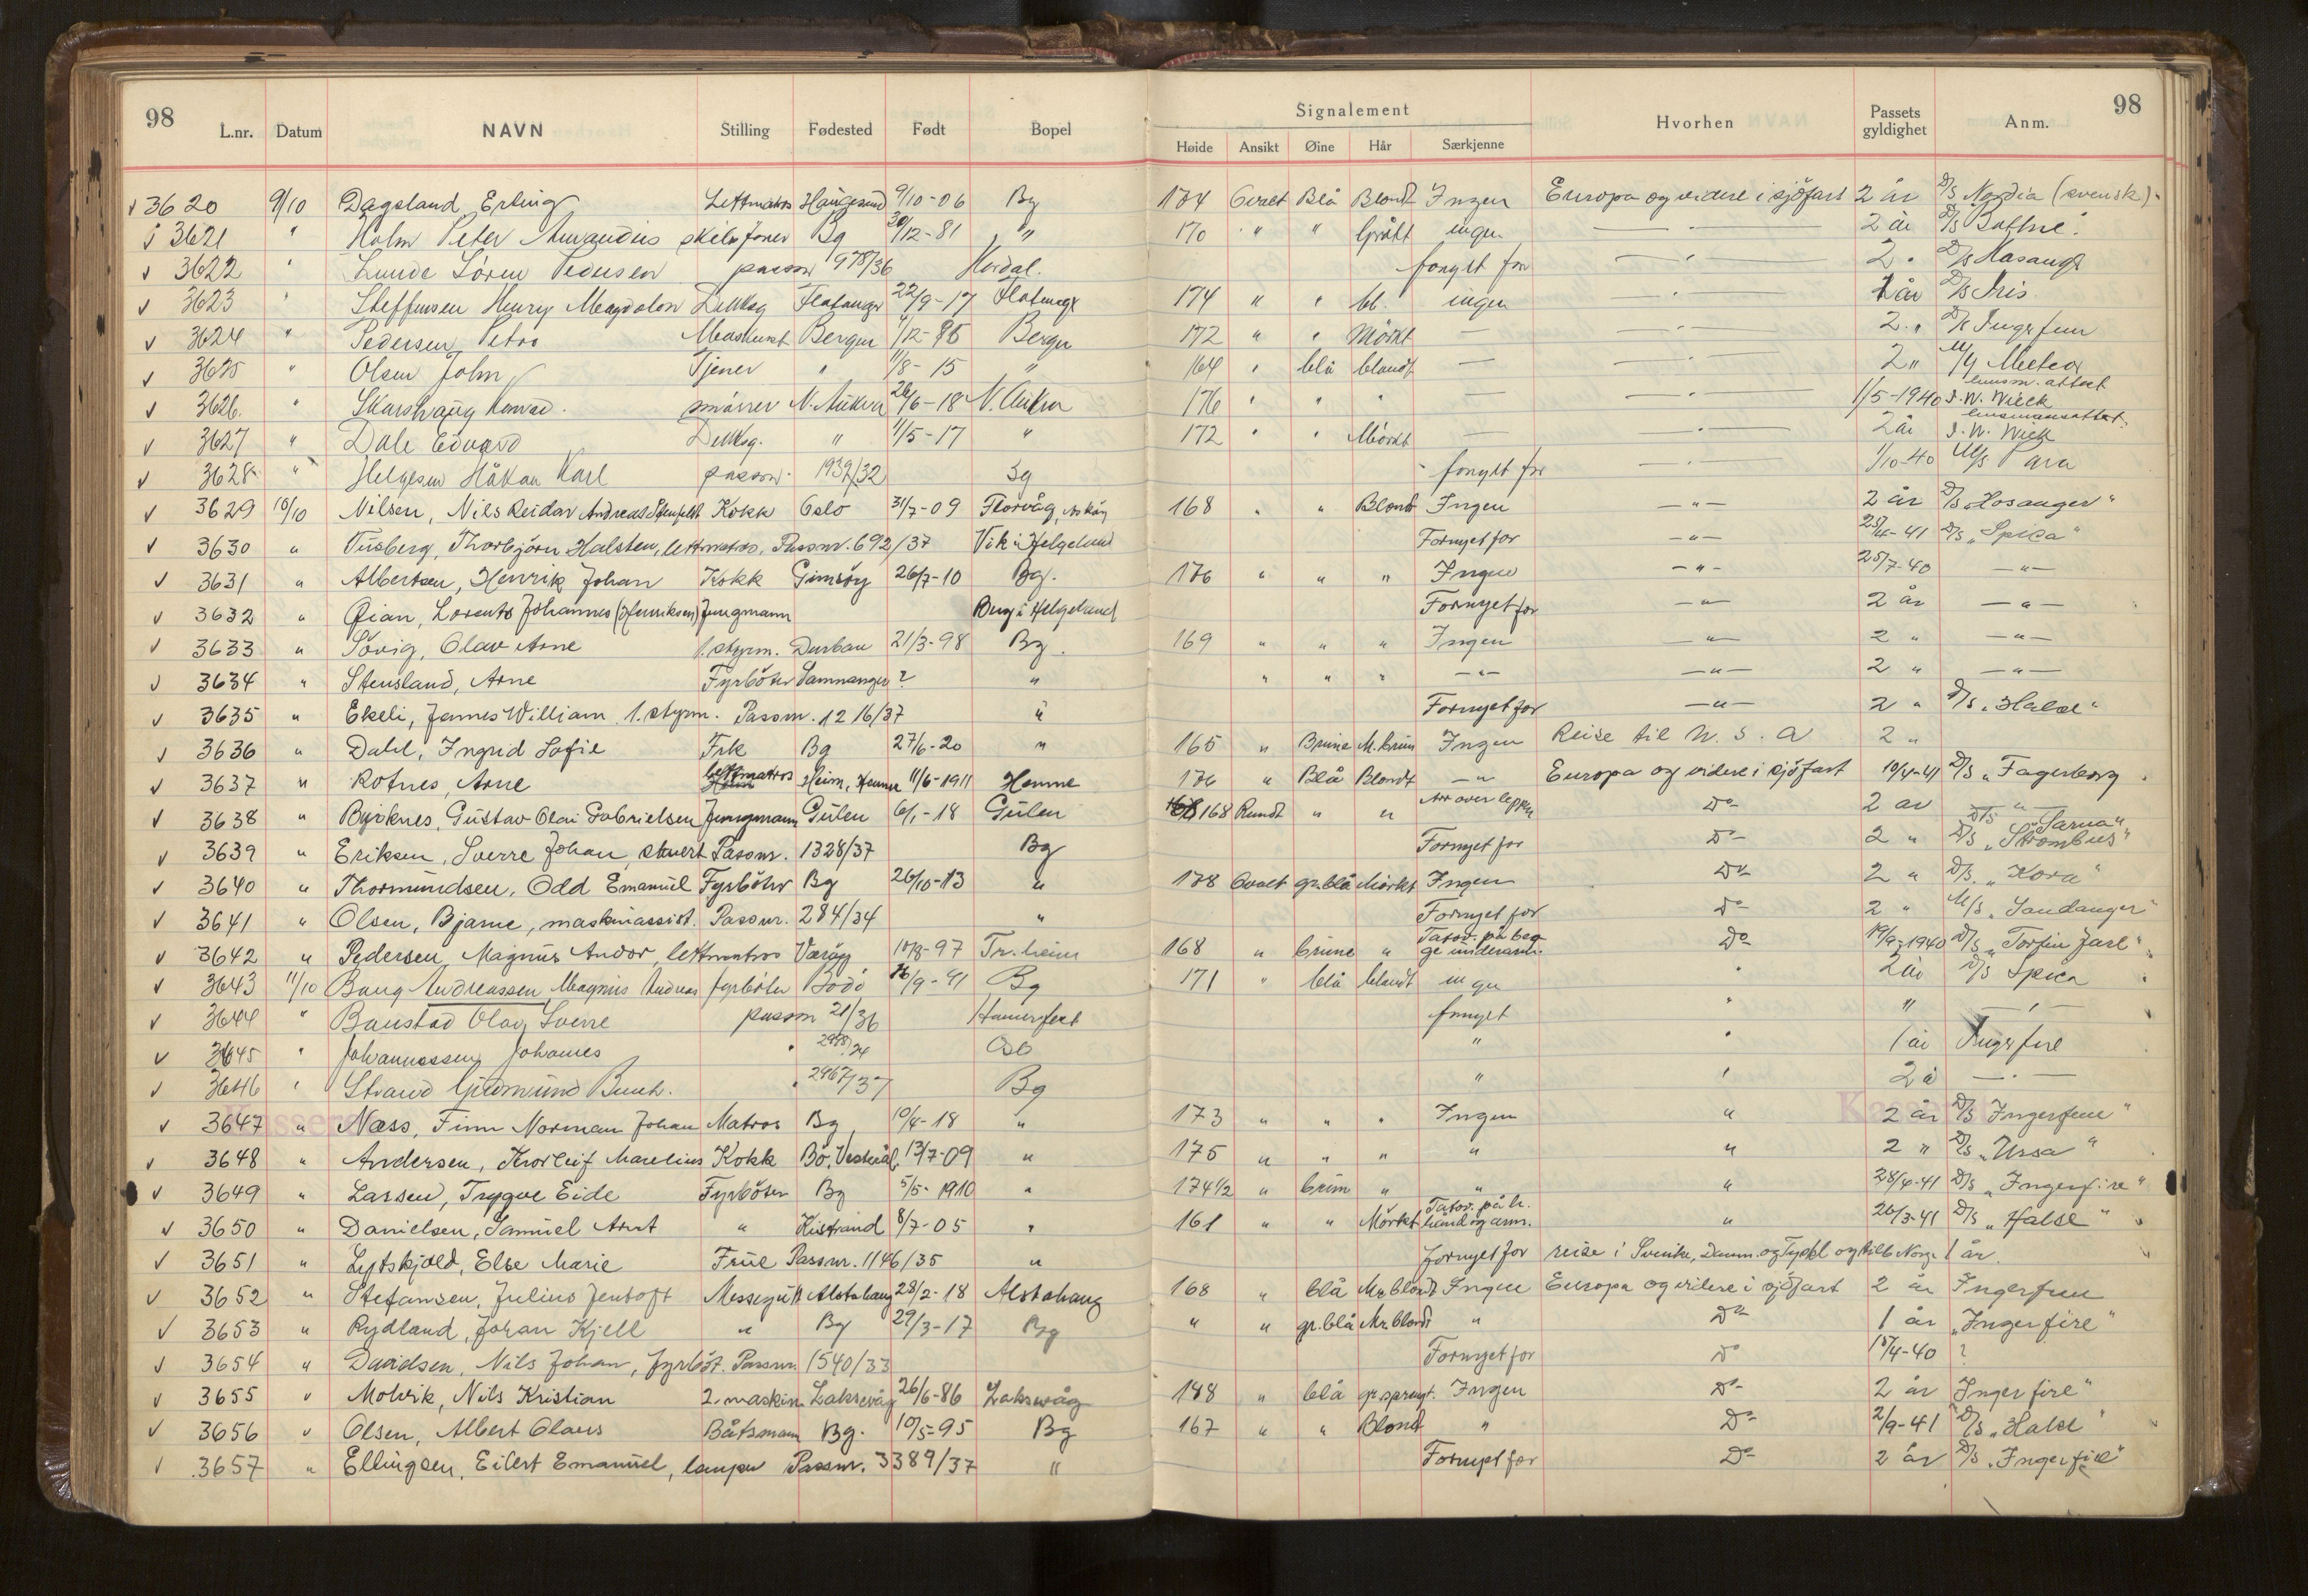 98 98
Signalement
L.nr. Datum NAVN Stilling Fødested Født Bopel Høide Ansikt Øine Hår Særkjenne Hvorhen Passets gyldighet Anm.
3620 9/10 Dagsland Erling Lettmatros Haugesund 9/10-06 Bg 174 Ovalt Blå Blondt Ingen Europa og videre i sjöfart 2 år D/S Nordia (svensk)
3621 " Holm Peter Amandus Bg 30/12-81 " 170 " " Grått ingen 2 år D/S
3622 " Lunde Sören Pedersen passnr 978/36 fornyet for 2 " D/S Hosanger
3623 " Steffensen Henry Magdalon Dekksg Flatanger 22/9-17 Flatanger 174 " " bl. ingen 2 år D/S Iris
3624 " Pedersen Petra Bergen Bergen 172 " " Mörkt — 2 " D/S Ingerfem
3625 " Olsen John Tjener " 11/8-15 " 164 " blå blondt — 2 " M/Y Meteor
3626 " Skarshaug Konrad smörer N. Aukra 26/6-18 N. Aukra 176 " " " — 1/5-1940 lensm. attest J.W. Wieck
3627 " Dale Edvard Dekksg. " 11/5-17 " 172 " " Mörkt — 2 år lensmannsattest J.W. Wiek
3628 " Helgesen Håkon Karl passnr 1939/32 Bg fornyet for 1/10-40 M/S Para
3629 10/10 Nilsen, Nils Reidar Andreas Stenfeldt Kokk Oslo 31/7-09 Florvåg, Asköy 168 " " Blondt Ingen —"— 2 år D/S Hosanger"
3630 " Tusberg, Thorbjörn Halsten, lettmatros, Passnr. 692/37 Vik i Helgeland Fornyet for —"— 25/4-41 D/S "Spica"
3631 " Albertsen, Henrik Johan Kokk Gimsöy 26/7-10 Bg. 176 " " " Ingen —"— 25/7-40 —"—
3632 " Öian, Lorents Johannes (Henriksen) Jungmann Berg i Helgeland Fornyet for —"— 2 år —"—
3633 " Sövig, Olav Arne 1. styrm. Durban 21/3-98 Bg. 169 " " " Ingen —"— 2 " —"—
3634 " Stensland, Arne Fyrböter Samnanger ? " " " " —"— —"— 2 " —"—
3635 " Ekeli, James William 1. styrm. Passnr. 1216/37 " Fornyet for —"— 2 " D/S "Halse"
3636 " Dahl, Ingrid Sofie Frk Bg 27/6-20 " 165 " Brune M. brun Ingen Reise til U.S.A 2 "
3637 " Rotnes, Arne lettmatros Heim, Hemne 11/6-1911 Hemne 176 " Blå Blondt —"— Europa og videre i sjöfart 10/4-41 D/S "Fagerborg
3638 " Byrknes, Gustav Olai Gabrielsen Jungmann Gulen 6/1-18 Gulen 168 Rundt " " Arr over leppen Do 2 år —"—
3639 " Eriksen, Sverre Johan, stuert Passnr. 1328/37 Bg Fornyet for Do 2 " D/S "Sarna" D/S "Strombus"
3640 " Thormundsen, Odd Emanuel Fyrböter Bg 26/10-13 " 178 Ovalt gr.blå Mörkt Ingen Do 2 " D/S. "Kora"
3641 " Olsen, Bjarne, maskinassist. Passnr. 284/34 " Fornyet for Do 2 " M/S "Sandanger"
3642 " Pedersen, Magnus Andor, lettmatros Væröy 10/8-97 Tr.heim 168 " brune " Tatov. på begge underarm. Do 19/9-1940 D/S "Torfin Jarl"
3643 11/10 Bang Andreassen Magnus Andreas fyrböter Bodö 16/9-91 Bg 171 " blå blondt ingen " 2 år D/S Spica
3644 " Baustad Olav Sverre passnr 21/36 Hamerfest fornyet " " —"—
3645 " Johannessen Johannes " Oslo " " 1 år Ingerfire
3646 " Strand Gudmund Bernh. " 2967/37 Bg " " 2 å —"—
3647 " Næss, Finn Norman Johan Matros Bg 10/4-18 " 173 " " " Ingen " 2 år D/S Ingerfem"
3648 " Andersen, Thorleif Marelius Kokk Bö, Vesterål. 13/7-09 " 175 " " " " " 2 " D/S "Ursa"
3649 " Larsen, Trygve Eide Fyrböter Bg 5/5-1910 " 174 1/2 " brun " " " 28/4-41 D/S "Ingerfire"
3650 " Danielsen, Samuel Arnt " Kistrand 8/7-05 " 161 " " Mörkt Tatov. på h. hånd og arm. " 20/3-41 D/S "Halse"
3651 " Lytskjold, Else Marie Frue Passnr. 1146/35 " fornyet for reise i Sverike, Danm. og Tyskl og tilb Norge 1 år
3652 " Stefansen, Julius Jentoft Messegutt Alstahaug 28/2-18 Alstahaug 168 " blå M. blondt Ingen Europa og videre i sjöfart 2 år Ingerfem
3653 " Rydland, Johan Kjell " Bg 29/3-17 Bg " " gr.blå M. blondt " Do 1 år "Ingerfire"
3654 " Davidsen, Nils Johan, fyrböt. Passnr. 1540/33 Fornyet for Do 15/4-40 ?
3655 " Molvik, Nils Kristian 2. maskin Laksevåg 26/6-86 Laksevåg 188 " blå gr.sprengt. Ingen Do 2 år Ingerfire"
3656 " Olsen, Albert Olaus Båtsmann Bg. 10/5-95 Bg 167 " " Blondt " Do 2/9-41 D/S "Halse"
3657 " Ellingsen, Eilert Emanuel, Passnr. 3389/37 " Fornyet for Do 2 år D/S "Ingerfire"